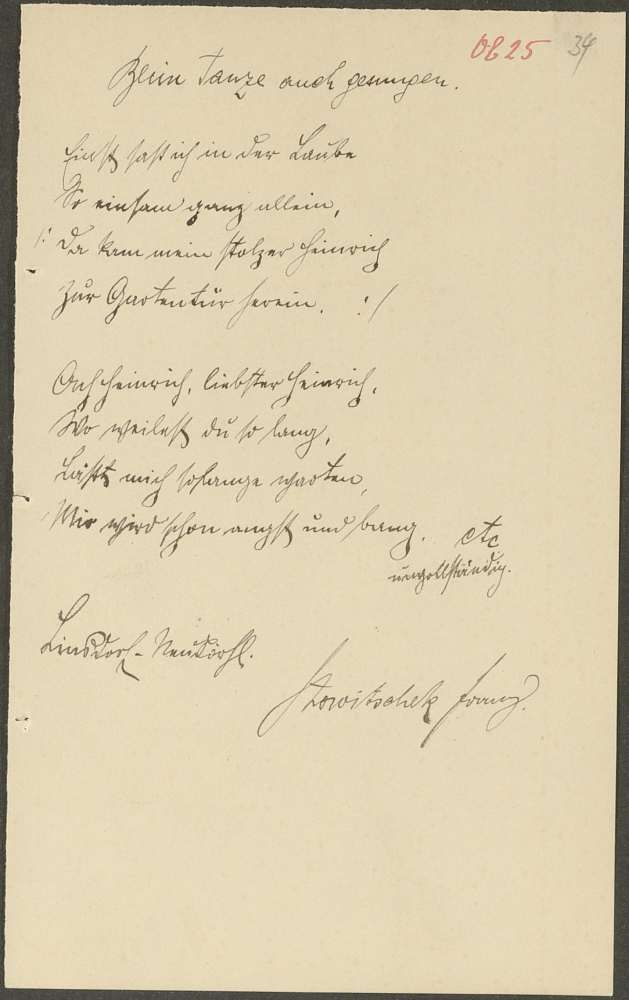 OB 25 34
Beim Tanze auch gesungen.
Einst saß ich in der Laube
So einsam ganz allein,
/: Da kam mein stolzer Heinrich
Zur Gartentür herein. :/
Ach Heinrich, liebster Heinrich,
Wo weilest du so lang,
Läßt mich solange warten,
Mir wird schon angst und bang. etc
unvollständig.
Linsdorf-
Franz.